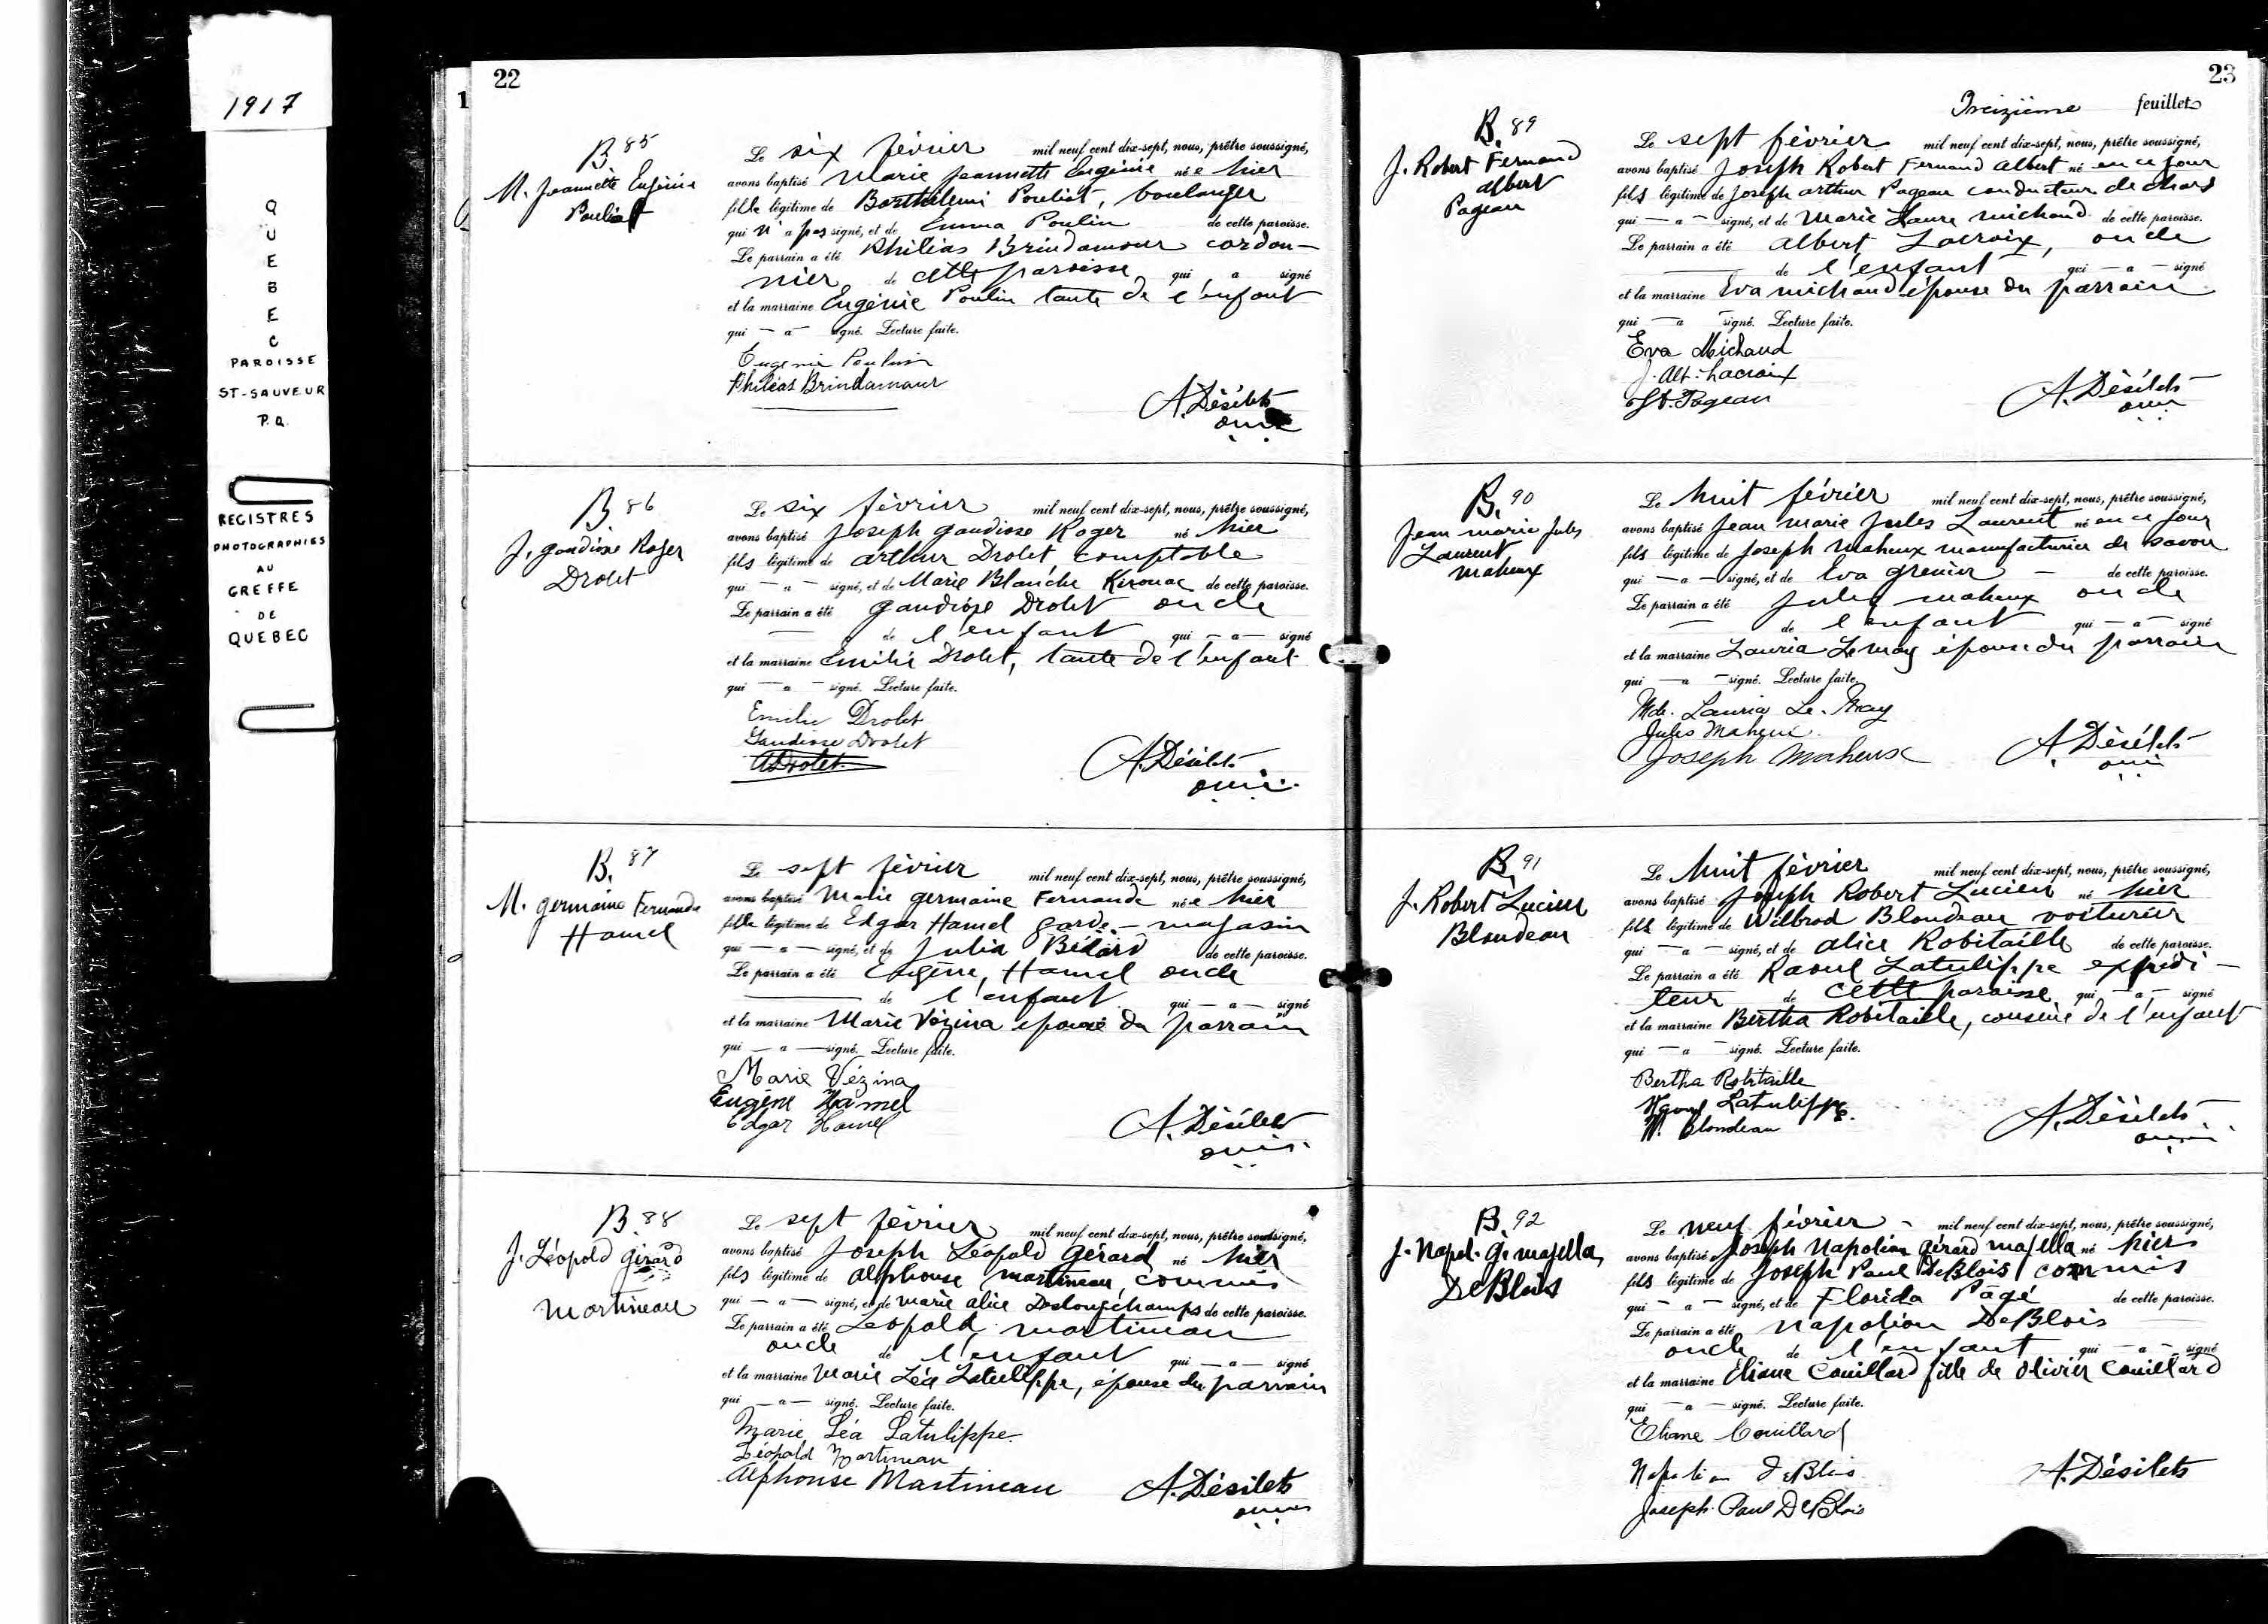 1917
QUEBEC
PAROISSE
ST-SAUVEUR
P.Q.
REGISTRES
PHOTOGRAPHIES
AU
GREFFE
DE
QUEBEC
22
1
B. 85
M. Jeannette Eugénie
Pouliot
Le six février mil neuf cent dix-sept, nous, prêtre soussigné,
avons baptisé Marie Jeannette Eugénie née hier
fille légitime de Barthélemi Pouliot, boulanger
qui n'a pas signé, et de Emma Poulin de cette paroisse.
Le parrain a été Philéas Brindamour cordon-
nier de cette paroisse qui a signé
et la marraine Eugénie Poulin tante de l'enfant
qui — a — signé. Lecture faite.
Eugenie Poulin
Philéas Brindamour
A. Désilets
o.m.i.
B. 86
J. Gaudiose Roger
Drolet
Le six février mil neuf cent dix-sept, nous, prêtre soussigné,
avons baptisé Joseph Gaudiose Roger né hier
fils légitime de Arthur Drolet comptable
qui — a — signé, et de Marie Blanche Kirouac de cette paroisse.
Le parrain a été Gaudiose Drolet oncle
— de l'enfant qui — a — signé
et la marraine Emilie Drolet, tante de l'enfant
qui — a — signé. Lecture faite.
Emilie Drolet
Gaudiose Drolet
A Drolet
A. Désilets
o.m.i.
B. 87
M. Germaine Fernande
Hamel
Le sept février mil neuf cent dix-sept, nous, prêtre soussigné,
avons baptisé Marie Germaine Fernande née hier
fille légitime de Edgar Hamel garde-magasin
qui — a — signé, et de Julia Bédard de cette paroisse.
Le parrain a été Eugène Hamel oncle
— de l'enfant qui — a — signé
et la marraine Marie Vézina epouse du parrain
qui — a — signé. Lecture faite.
Marie Vézina
Eugène Hamel
Edgar Hamel
A. Désilets
o.m.i.
B. 88
J. Léopold Gérard
Martineau
Le sept février mil neuf cent dix-sept, nous, prêtre soussigné,
avons baptisé Joseph Léopold Gérard né hier
fils légitime de Alphonse Martineau, commis
qui — a — signé, et de Marie Alice Deslongchamps de cette paroisse.
Le parrain a été Léopold Martineau
oncle de l'enfant qui — a — signé
et la marraine Marie Léa Latulippe, épouse du parrain
qui — a — signé. Lecture faite.
Marie Léa Latulippe
Léopold Martineau
Alphonse Martineau
A. Désilets
o.m.i.
23
Treizième feuillet
B. 89
J. Robert Fernand
Albert
Pageau
Le sept février mil neuf cent dix-sept, nous, prêtre soussigné,
avons baptisé Joseph Robert Fernand Albert né en ce jour
fils légitime de Joseph Arthur Pageau conducteur de chars
qui — a — signé, et de Marie Laure Michaud de cette paroisse.
Le parrain a été Albert Lacroix, oncle
— de l'enfant qui — a — signé
et la marraine Eva Michaud épouse du parrain
qui — a — signé. Lecture faite.
Eva Michaud
J. Alt. Lacroix
Pageau
A. Désilets
o.m.i.
B. 90
Jean Marie Jules
Laurent
Maheux
Le huit février mil neuf cent dix-sept, nous, prêtre soussigné,
avons baptisé Jean Marie Jules Laurent né en ce jour
fils légitime de Joseph Maheux manufacturier de savon
qui — a — signé, et de Eva Grenier — de cette paroisse.
Le parrain a été Jules Maheux oncle
— de l'enfant qui — a — signé
et la marraine Lauria Lemay épouse du parrain
qui — a — signé. Lecture faite.
Mde. Lauria Le. May
Jules Maheux
Joseph Maheux
A. Désilets
o.m.i.
B. 91
J. Robert Lucien
Blondeau
Le huit février mil neuf cent dix-sept, nous, prêtre soussigné,
avons baptisé Joseph Robert Lucien né hier
fils légitime de Wilbrod Blondeau voiturier
qui — a — signé, et de Alice Robitaille de cette paroisse.
Le parrain a été Raoul Latulippe expédi-
teur de cette paroisse qui — a — signé
et la marraine Bertha Robitaille, cousine de l'enfant
qui — a — signé. Lecture faite.
Bertha Robitaille
Raoul Latulippe.
W. Blondeau
A. Désilets
o.m.i.
B. 92
J. Napol. G. Majella
DeBlois
Le neuf février - mil neuf cent dix-sept, nous, prêtre soussigné,
avons baptisé Joseph Napoléon Gérard Majella né hier
fils légitime de Joseph Paul DeBlois commis
qui — a — signé, et de Florida Pagé de cette paroisse.
Le parrain a été Napoléon DeBlois
oncle de l'enfant qui — a — signé
et la marraine Eliane Couillard fille de Olivier Couillard
qui — a — signé. Lecture faite.
Eliane Couillard
Napoléon DeBlois
Joseph Paul DeBlois
A. Désilets